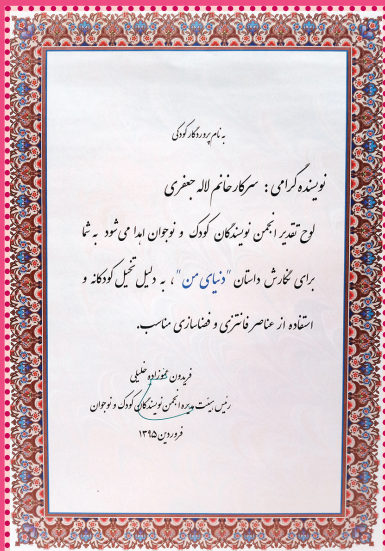 به نام پروردگار کودکی
نویسنده گرامی: سرکار خانم لاله جعفری
لوح تقدیر انجمن نویسندگان کودک و نوجوان اهدا می‌شود به شما
برای نگارش داستان "دنیای من"، به دلیل تخیل کودکانه و
استفاده از عناصر فانتزی و فضاسازی مناسب.
فریدون عموزاده خلیلی
رئیس هیئت مدیره انجمن نویسندگان کودک و نوجوان
فروردین ۱۳۹۵